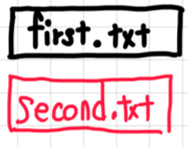 first.txt
second.txt